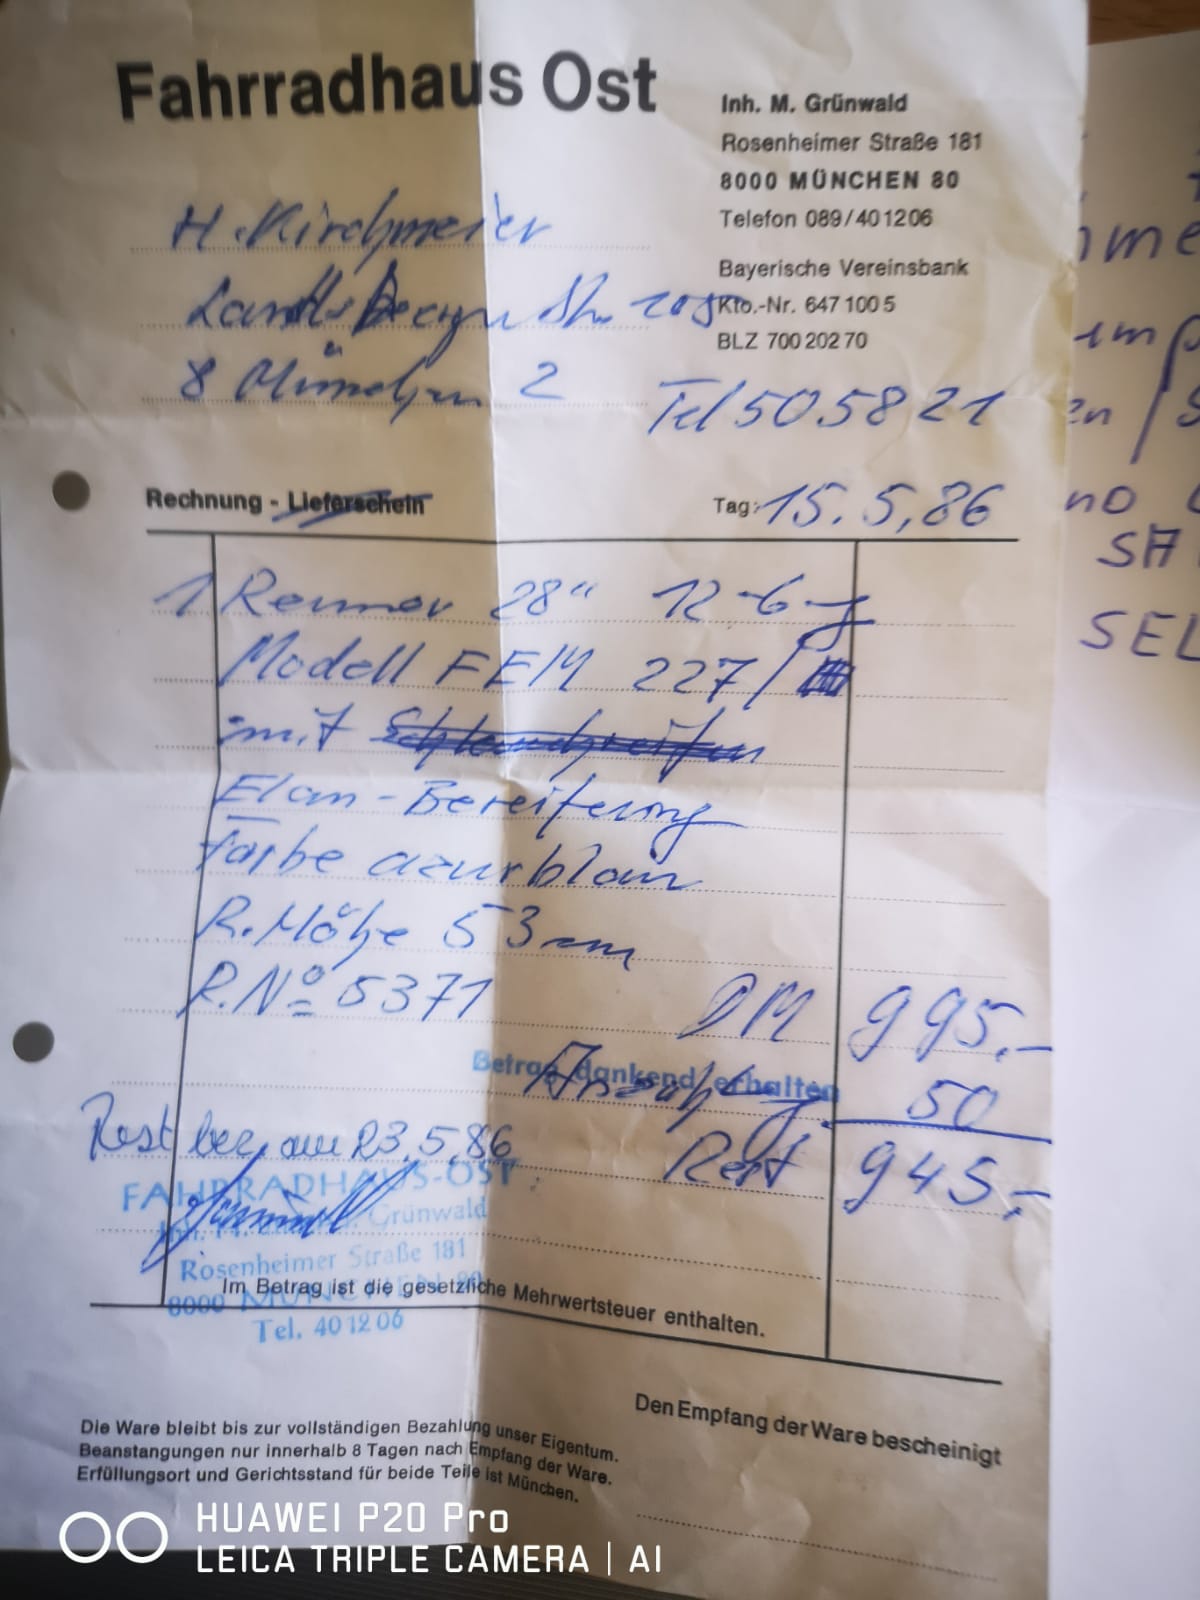 Fahrradhaus Ost
Inh. M. Grünwald
Rosenheimer Straße 181
8000 MÜNCHEN 80
Telefon 089/401206
Bayerische Vereinsbank
Kto.-Nr. 647 100 5
BLZ 700 202 70
H. Kirchmeier
8 München 2
Tel 505821
Rechnung - Lieferschein
Tag: 15.5.86
1 Renner 28" 12-G
Modell FEM 227/
mit Schlauchreifen
Elan-Bereifung
Farbe azurblau
R.Höhe 53 cm
R.No 5371
DM 995.-
Betrag dankend erhalten
Anzahlung 50
Rest bez. am 23.5.86
Rest 945,-
FAHRRADHAUS-OST
Inh. M. Grünwald
Rosenheimer Straße 181
8000 MÜNCHEN 80
Tel. 40 12 06
Im Betrag ist die gesetzliche Mehrwertsteuer enthalten.
Den Empfang der Ware bescheinigt
Die Ware bleibt bis zur vollständigen Bezahlung unser Eigentum.
Beanstangungen nur innerhalb 8 Tagen nach Empfang der Ware.
Erfüllungsort und Gerichtsstand für beide Teile ist München.
HUAWEI P20 Pro
LEICA TRIPLE CAMERA | AI